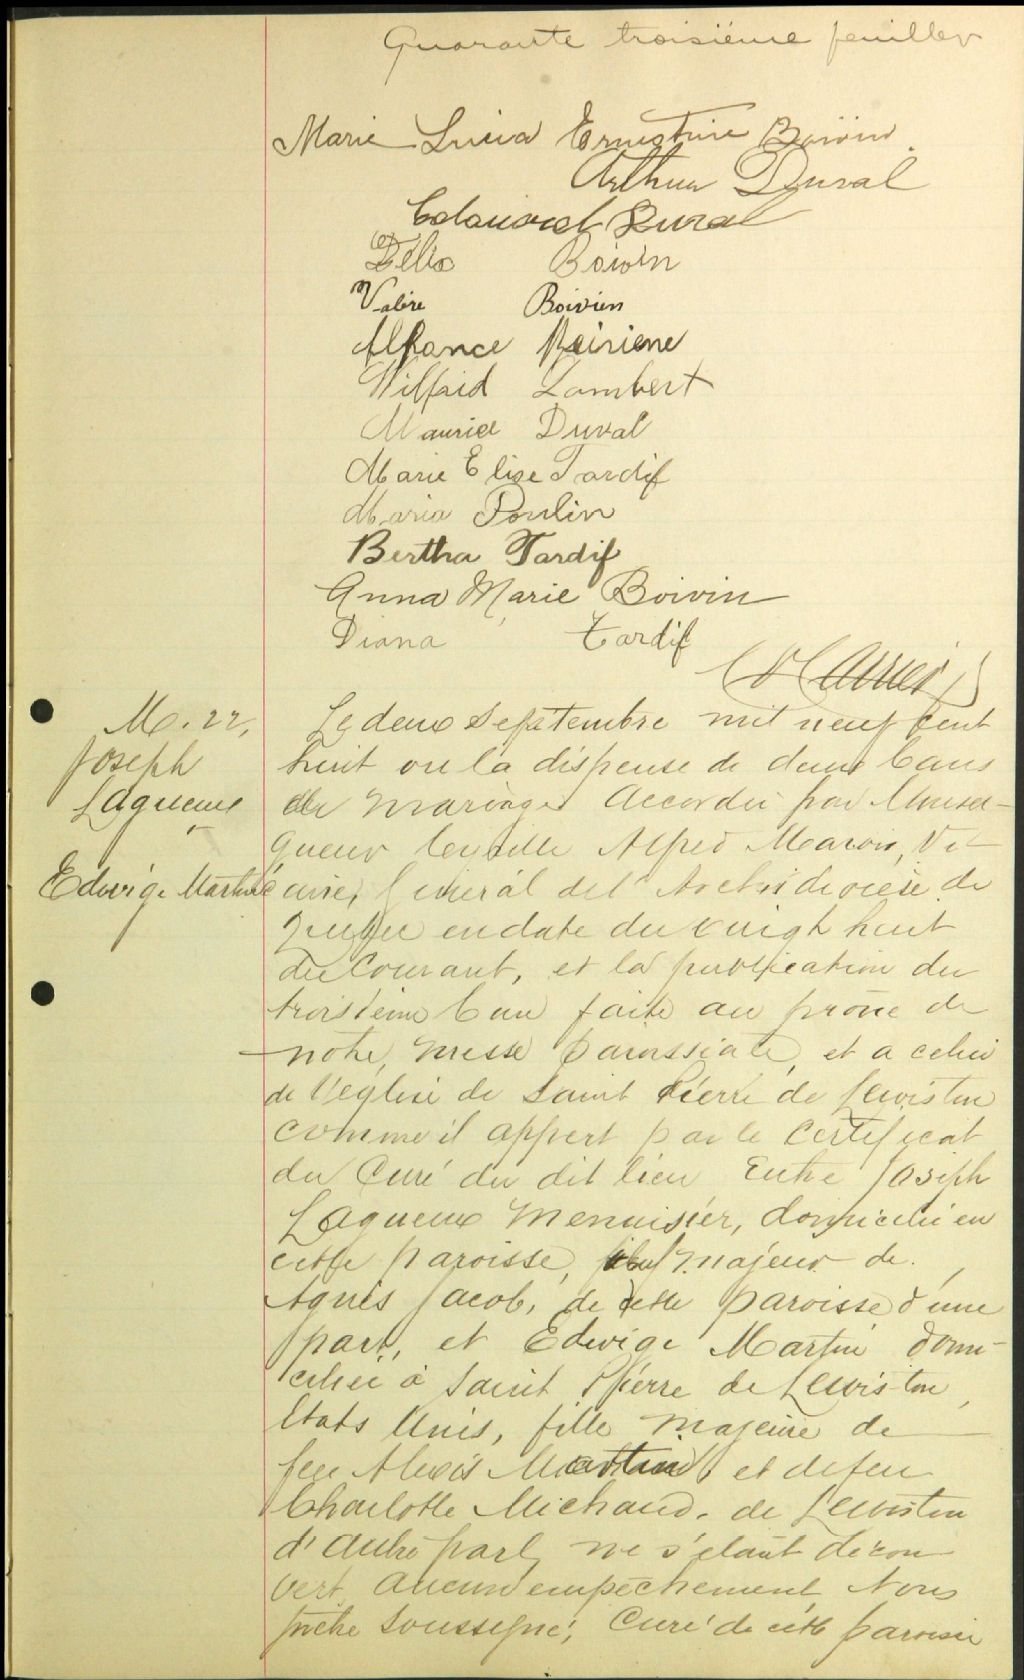 Quarante troisième feuillet
Marie Luiva Ernestine Boivin.
Arthur Duval
Edouard Duval
Délia Boivin
Valère Boivien
Alfonce
Wilfrid Lambert
Maurice Duval
Marie Elise Tardif
Maria Poulin
Bertha Tardif
Anna Marie Boivin
Diana Tardif
M. 22,
Joseph
Lagueux
Edwige Martin
Le deux septembre mil neuf cent
huit vu la dispense de deux bans
de mariage accordée par Monsei-
gneur Cyrille Alfred Marois, Vi-
caire, Général de l'Archidiocèse de
Québec en date du vingt huit
du courant, et la publication du
troisième ban faite au prône de
notre messe paroissiale, et a celui
de l'église de Saint Pierre de Lewiston
comme il appert par le certificat
du Curé du dit lieu Entre Joseph
Lagueux Menuisier, domicilié en
cette paroisse, fils majeur de
Agnès Jacob, de cette paroisse d'une
part, et Edwige Martin domi-
ciliée à Saint Pierre de Lewiston,
Etats Unis, fille majeure de
feu Alexis Martin, et de feu
Charlotte Michaud, de Lewiston
d'autre part, ne s'étant décou
vert aucun empêchement, Nous
prêtre soussigné, Curé de cette paroisse